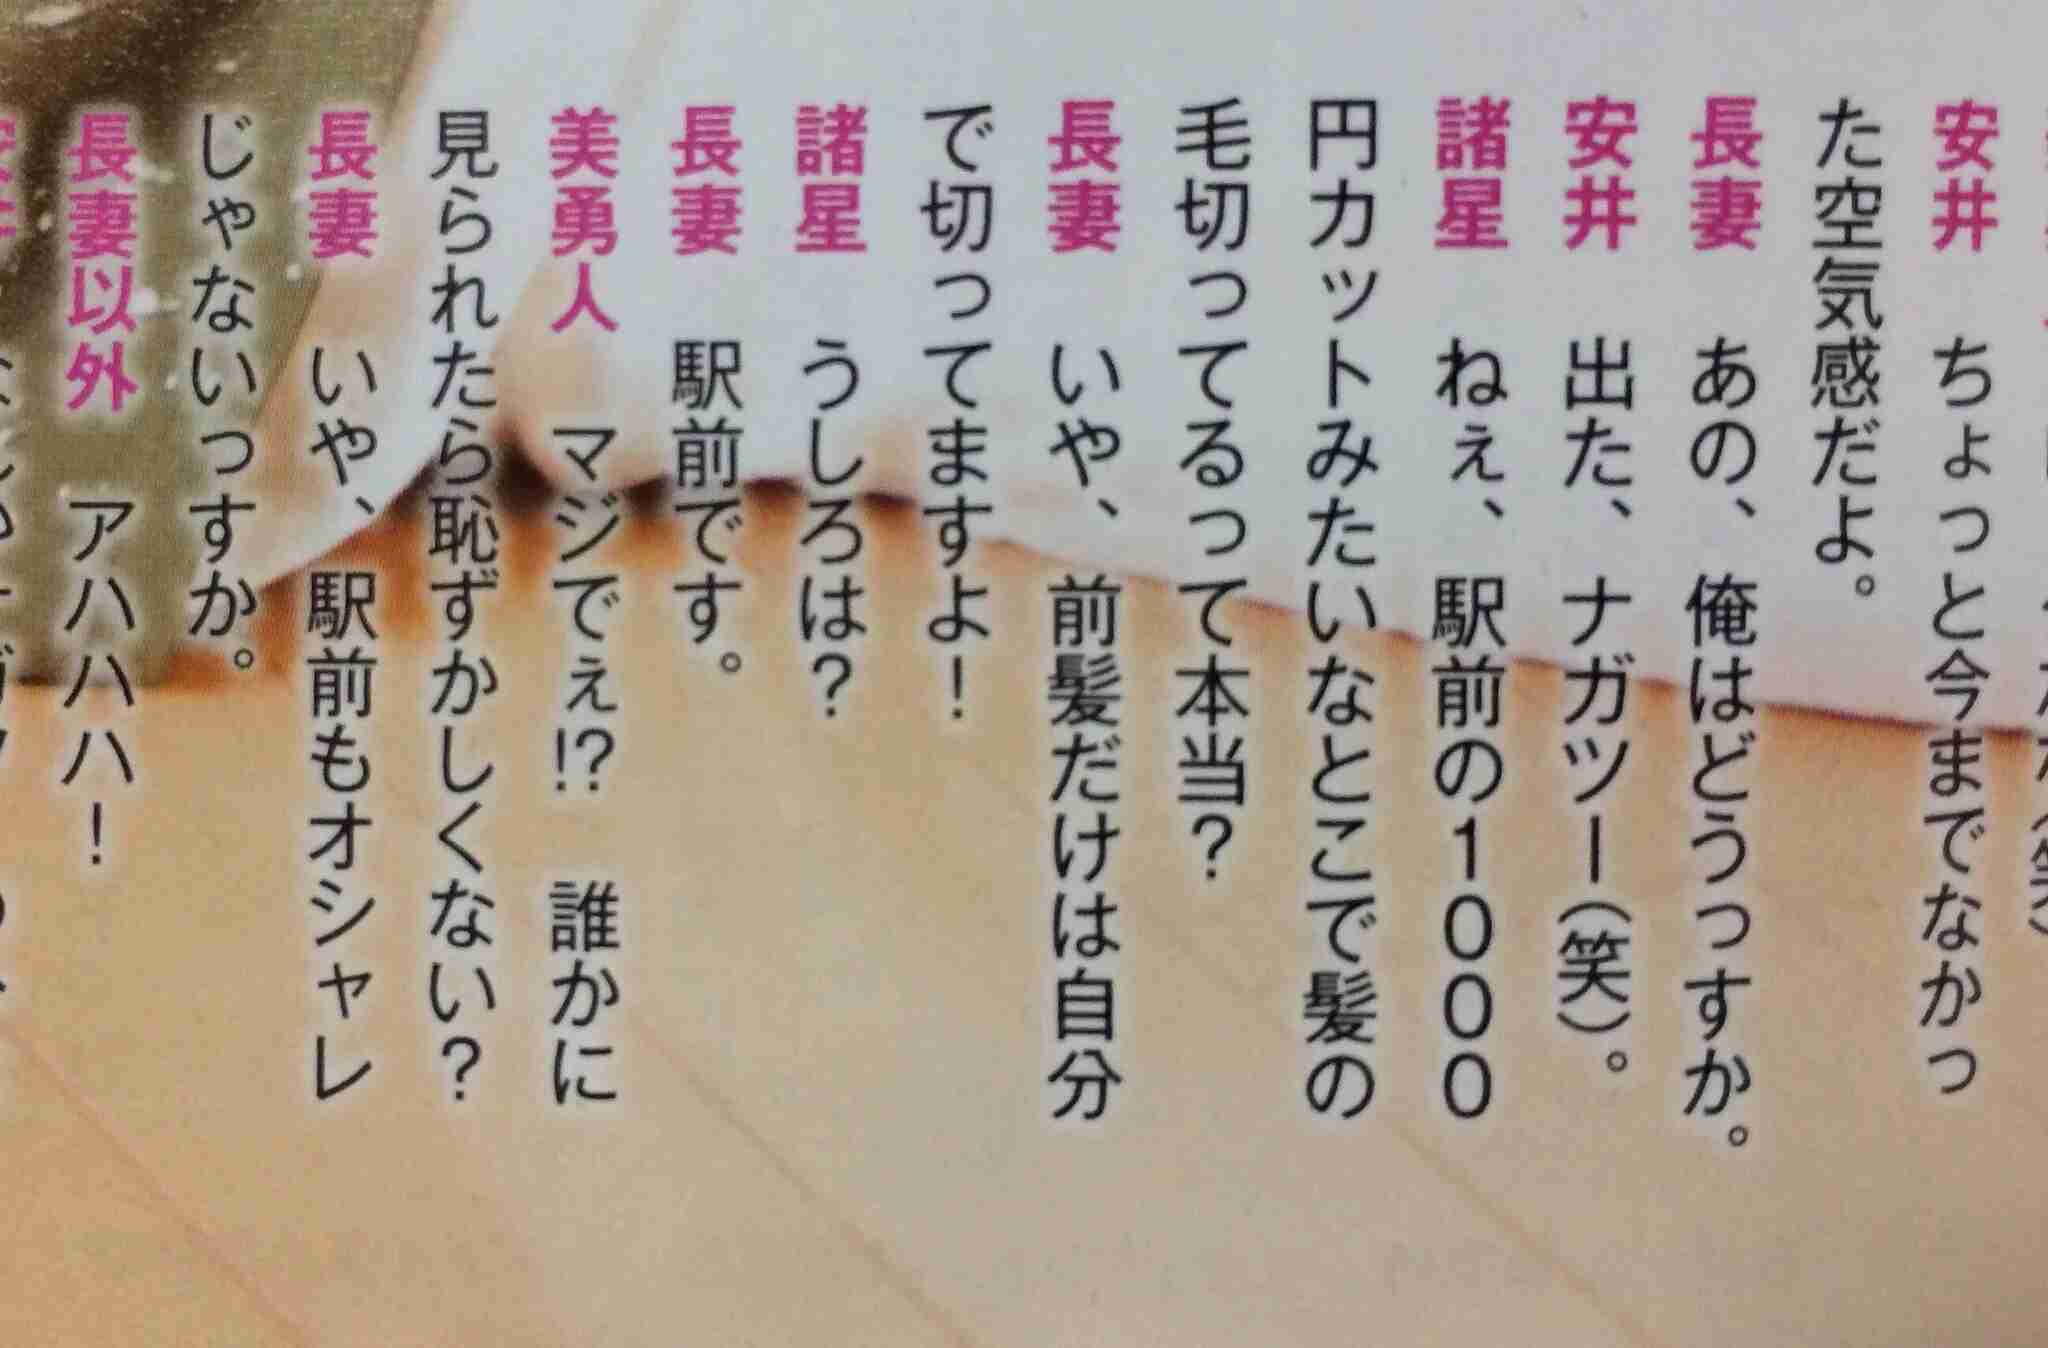 安井　ちょっと今までなかっ
た空気感だよ。
長妻　あの、俺はどうっすか。
安井　出た、ナガツー（笑）。
諸星　ねぇ、駅前の1000
円カットみたいなとこで髪の
毛切ってるって本当？
長妻　いや、前髪だけは自分
で切ってますよ！
諸星　うしろは？
長妻　駅前です。
美勇人　マジでぇ!?　誰かに
見られたら恥ずかしくない？
長妻　いや、駅前もオシャレ
じゃないっすか。
長妻以外　アハハハ！